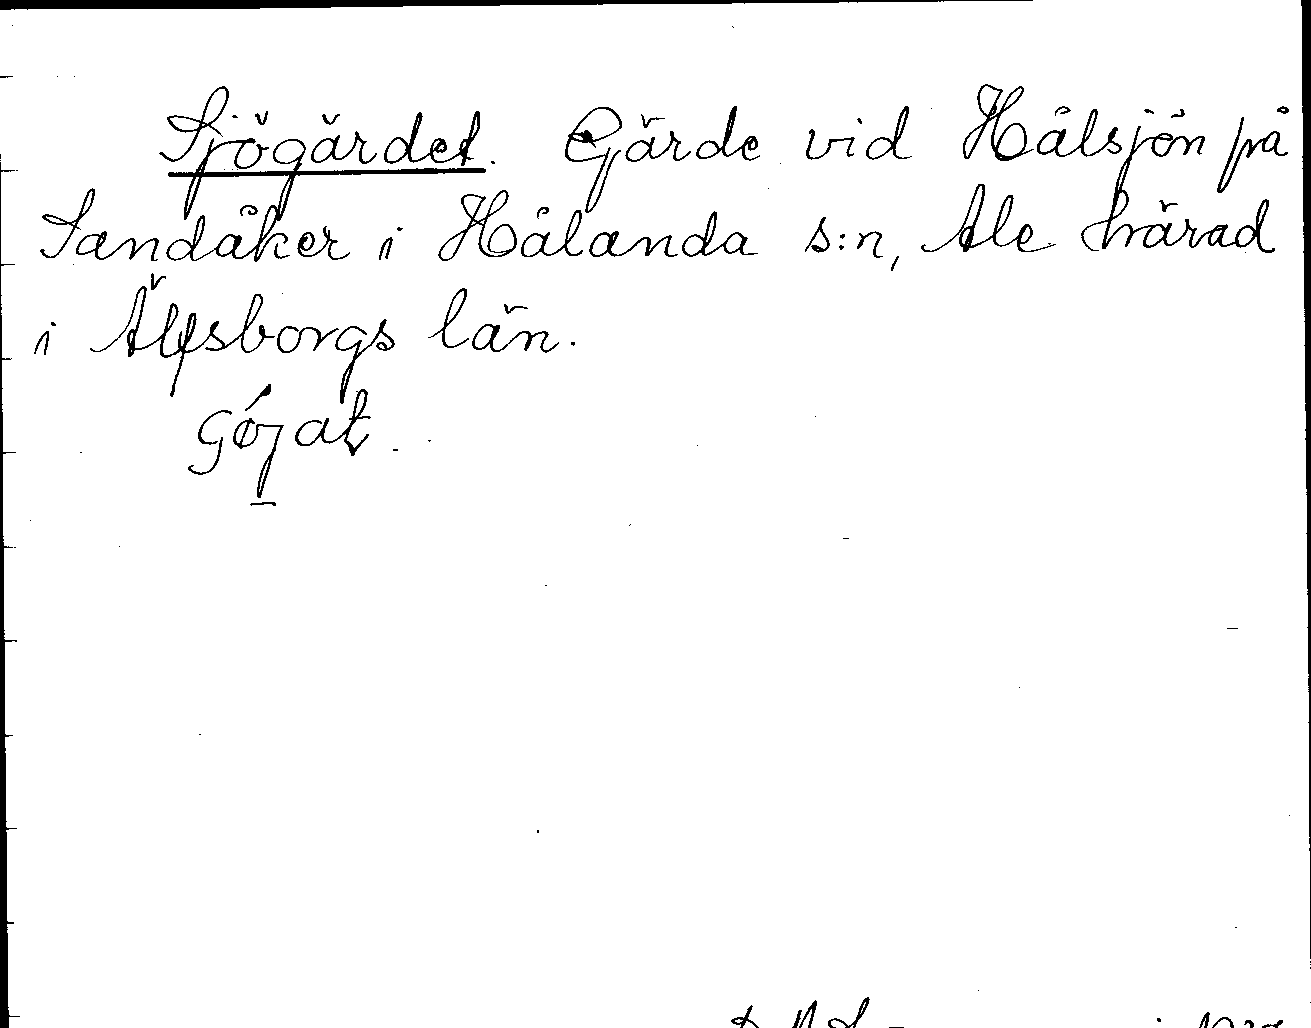 Sjögärdet. Gärde vid Hålsjön på
Sandåker i Hålanda s:n, Ale härad
i Älfsborgs län.
Göjat.